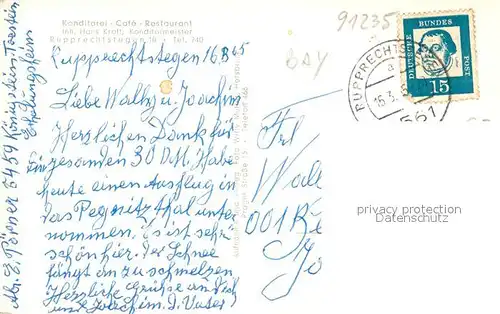 Konditorei - Café - Restaurant
Inh. Hans Kraft, Konditormeister
Rupprechtstegen 16 - Tel. 740
91235
BAY
DEUTSCHE BUNDES POST
15
RUPPRECHTSTEGEN
16.3.
561
Rupprechtstegen 16 65
Liebe Wally u. Joachim
Herzlichen Dank für
gesanden 30 DM. Habe
heute einen Ausflug in
das Pegnitzthal unter
nommen. Es ist sehr
schön hier. der Schnee
fängt an zu schmelzen
Herzliche Grüße an Dich
und Joachim. d. Vater
Abs. E. Pöpper 8459
Erholungsheim
Frl
001
privacy protection
Datenschutz